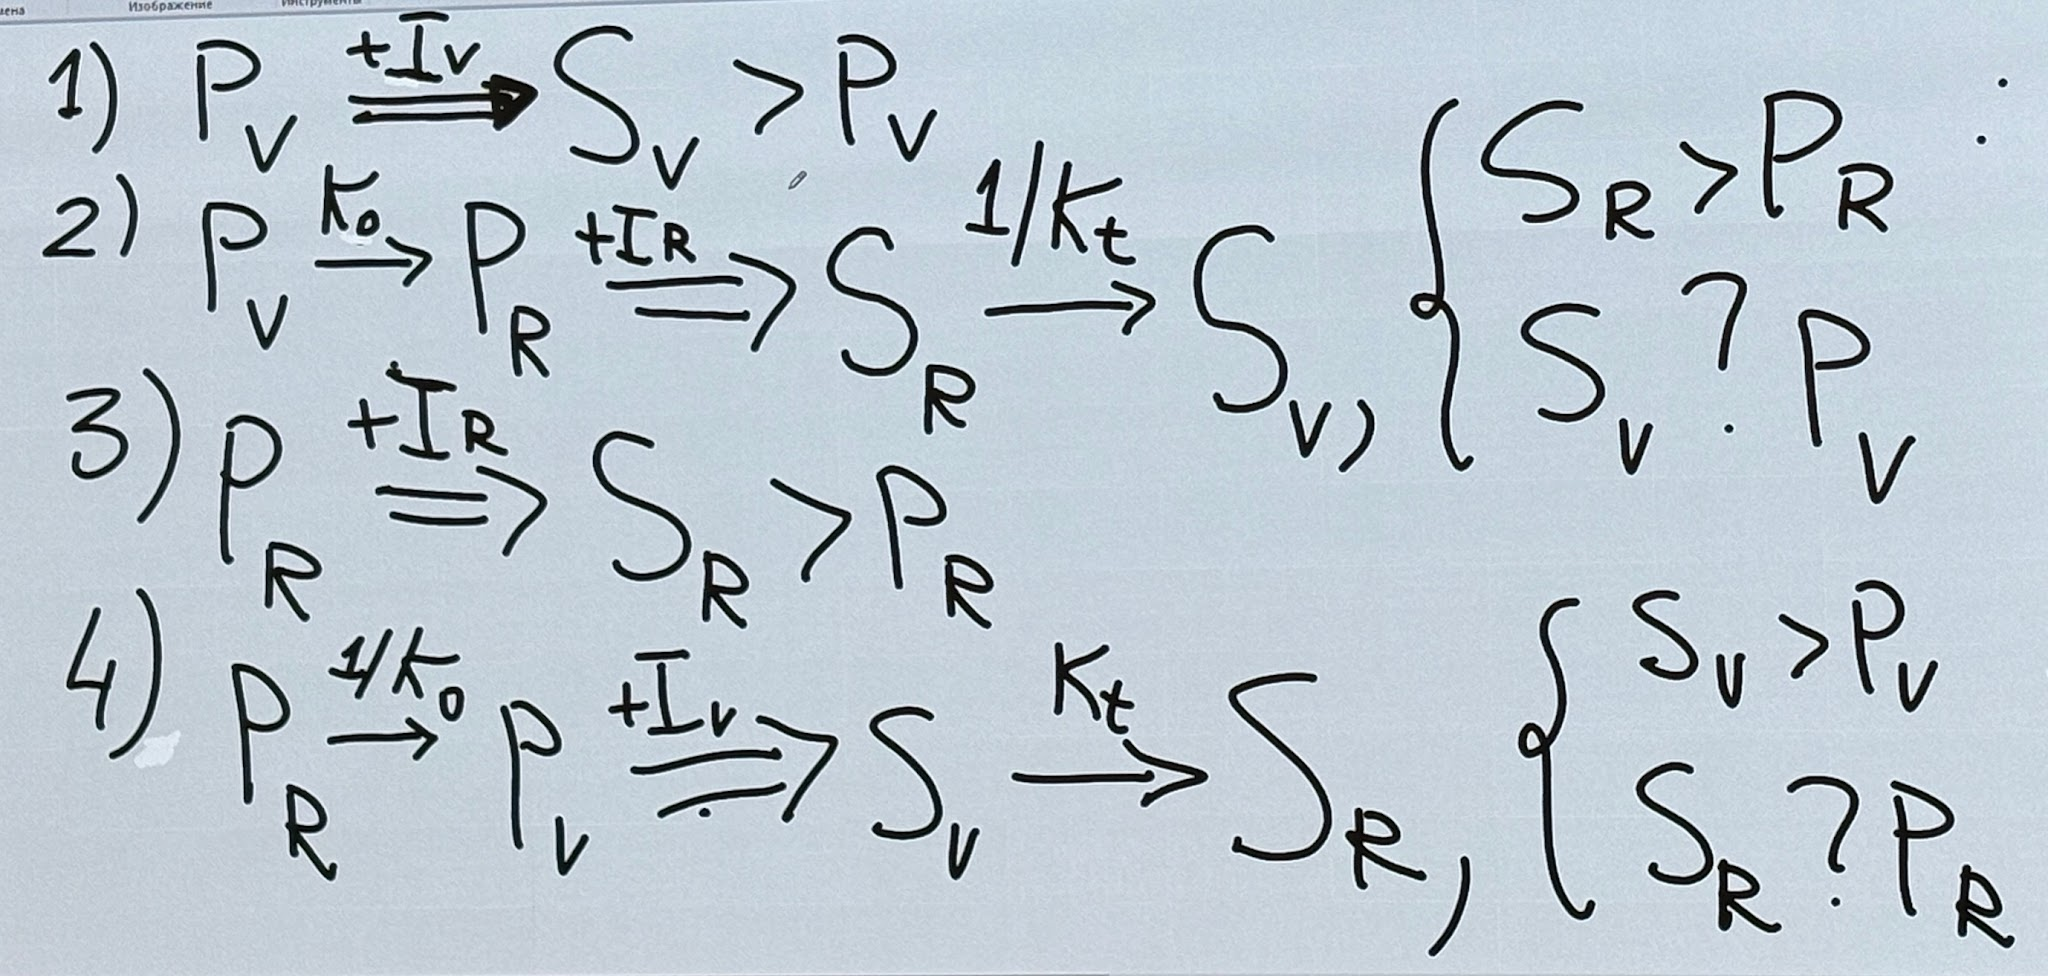 Изображение
1) P_V +I_V ⇒ S_V > P_V
2) P_V K_0 → P_R +I_R ⇒ S_R 1/K_t → S_V, { S_R > P_R
S_V ? P_V
3) P_R +I_R ⇒ S_R > P_R
4) P_R 1/K_0 → P_V +I_V ⇒ S_V K_t → S_R, { S_V > P_V
S_R ? P_R